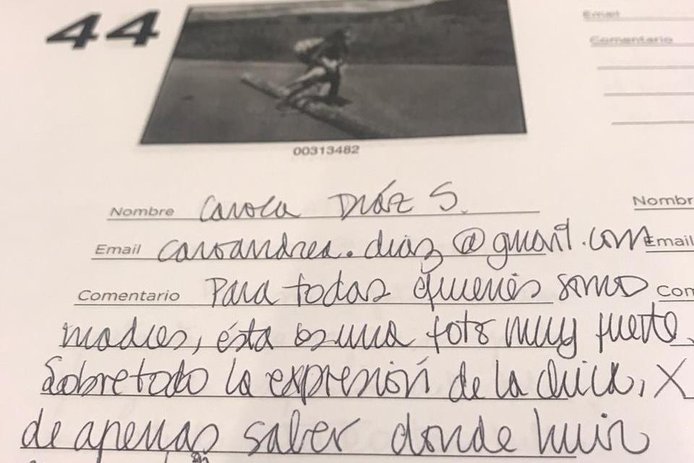 44
Email
Comentario
00313482
Nombre Carola Díaz S.
Nombr
Email caroandrea.diaz@gmail.com
Email
Comentario Para todas quienes somos
Com
madres, ésta es una foto muy fuerte.
Sobretodo la expresión de la chica, X
de apenas saber donde huir